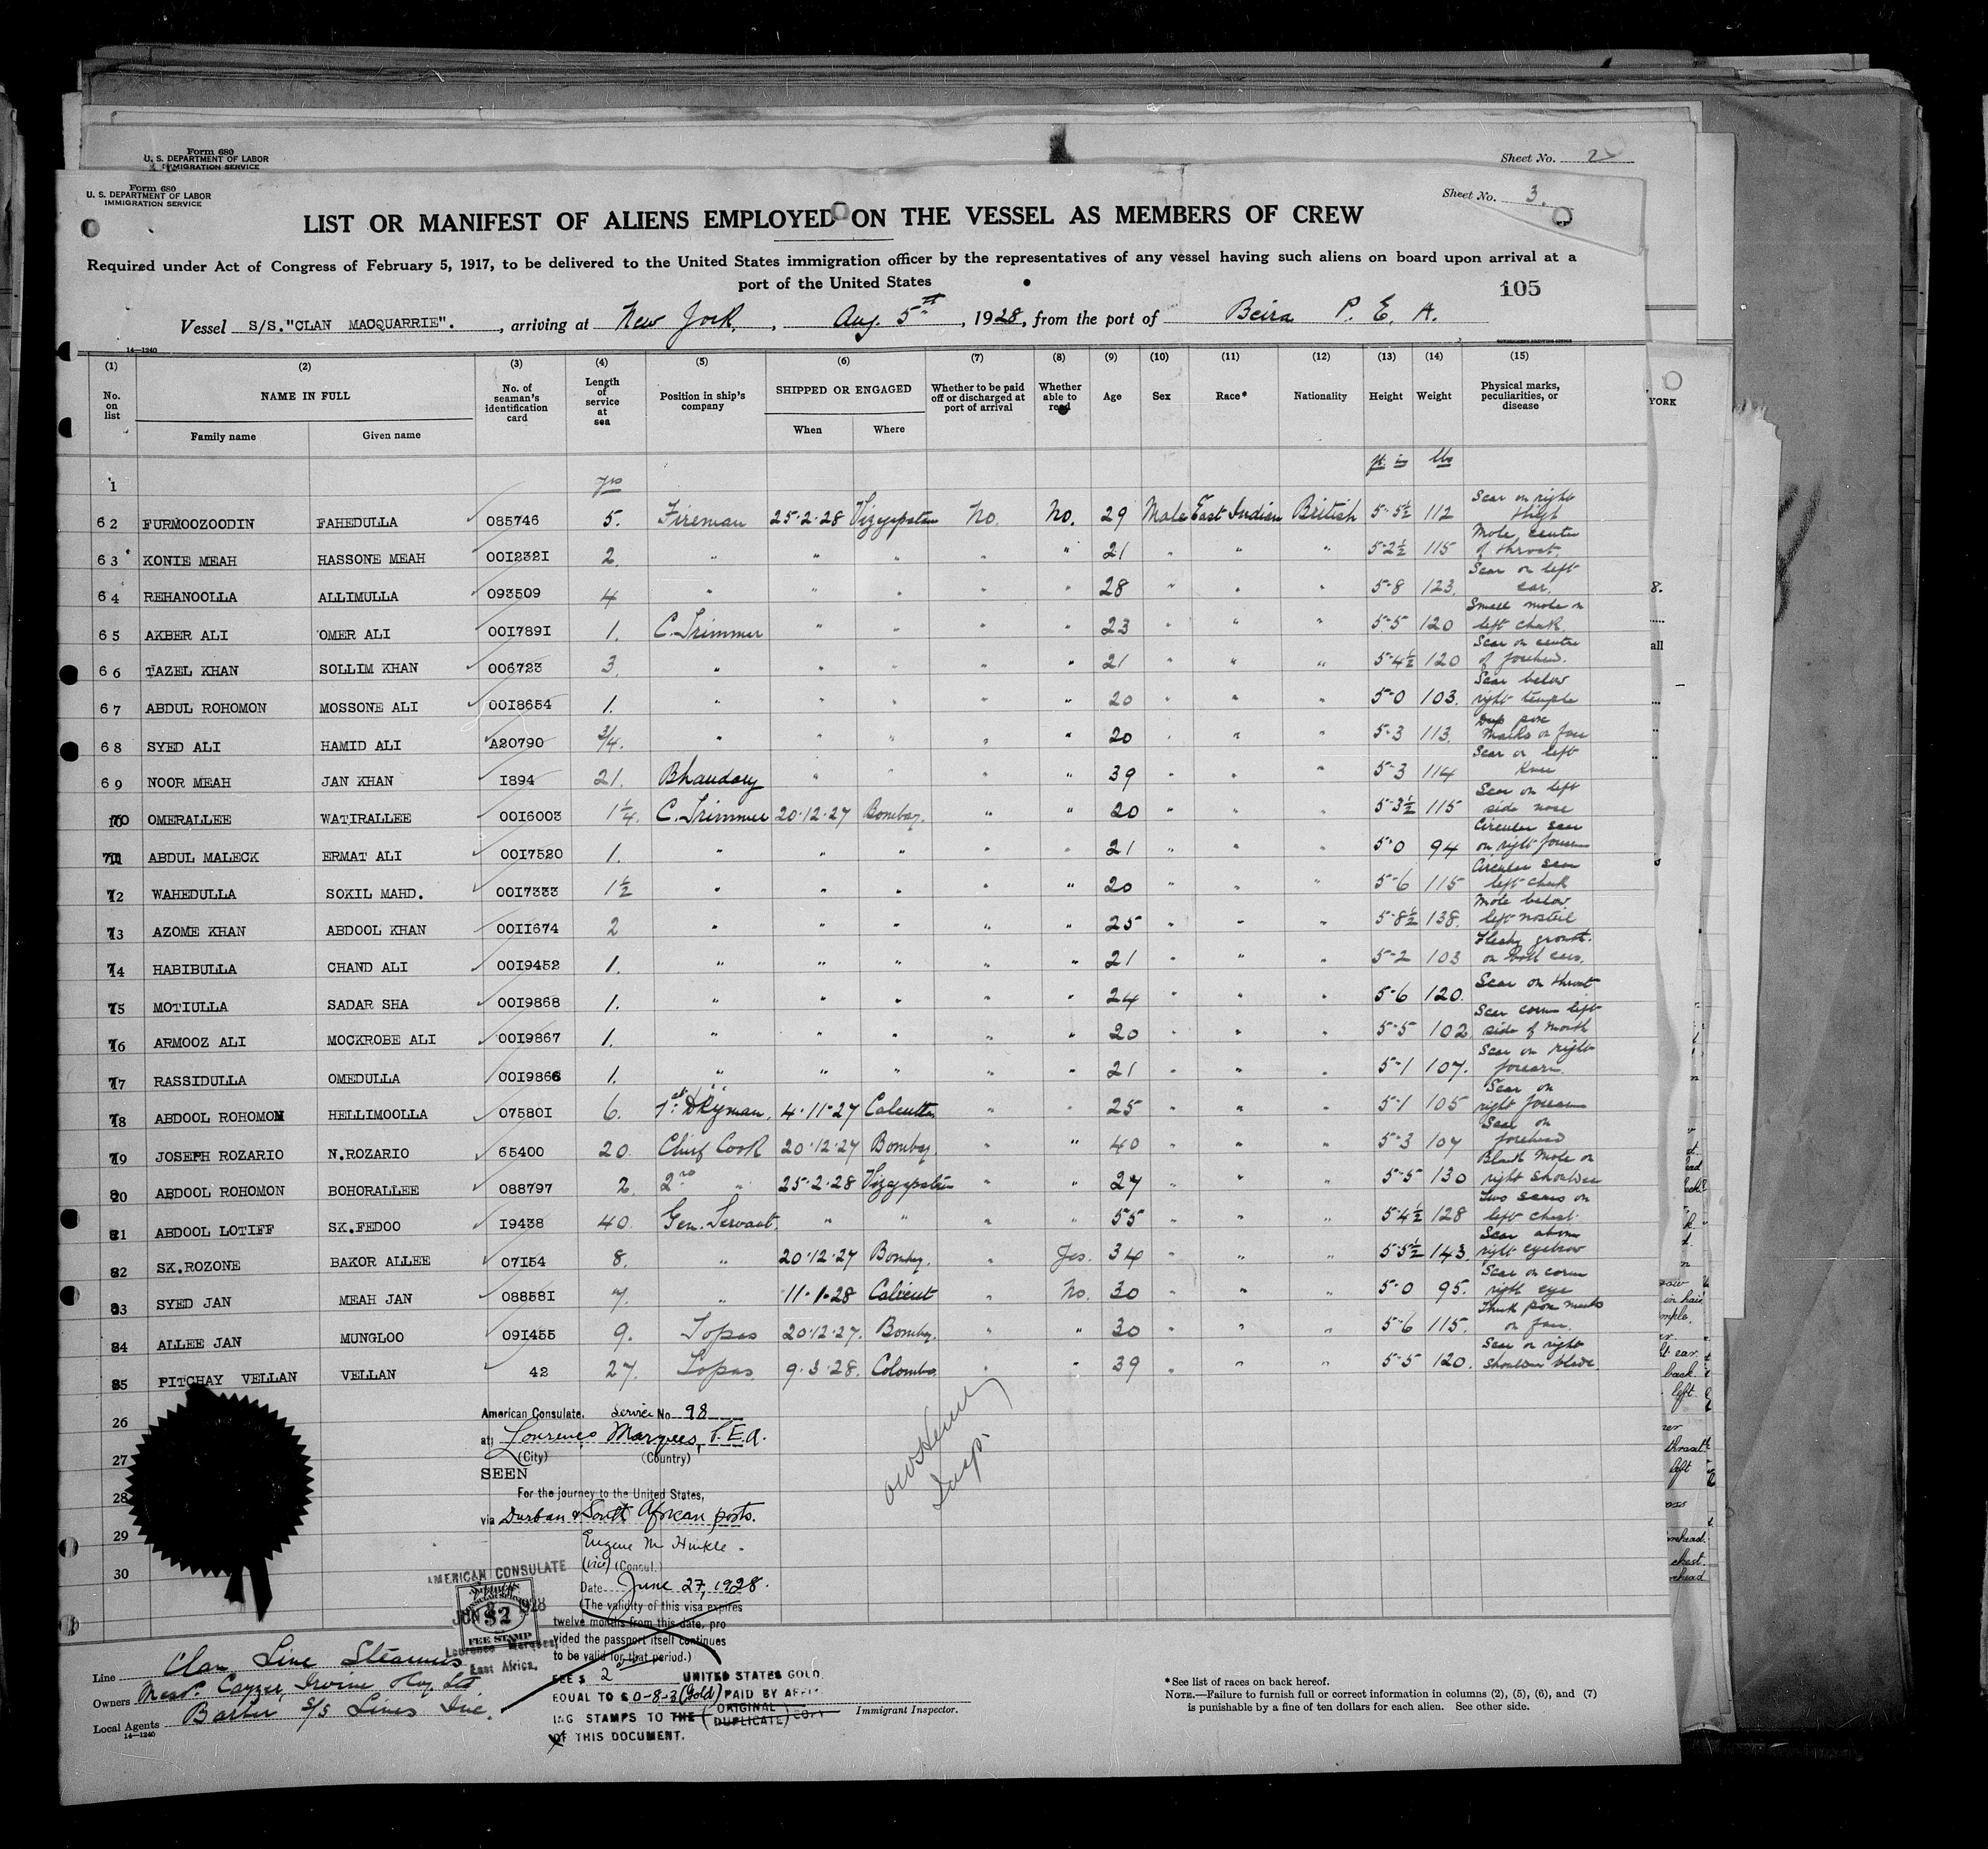 Form 680
U. S. DEPARTMENT OF LABOR
IMMIGRATION SERVICE
Sheet No. 2
Form 680
U. S. DEPARTMENT OF LABOR
IMMIGRATION SERVICE
Sheet No. 3.
LIST OR MANIFEST OF ALIENS EMPLOYED ON THE VESSEL AS MEMBERS OF CREW
Required under Act of Congress of February 5, 1917, to be delivered to the United States immigration officer by the representatives of any vessel having such aliens on board upon arrival at a
port of the United States
105
Vessel S/S."CLAN MACQUARRIE"., arriving at New York, Aug. 5th, 1928, from the port of Beira P. E. A.
14—1240
(1) (2) (3) (4) (5) (6) (7) (8) (9) (10) (11) (12) (13) (14) (15)
No. on list NAME IN FULL No. of seaman's identification card Length of service at sea Position in ship's company SHIPPED OR ENGAGED Whether to be paid off or discharged at port of arrival Whether able to read Age Sex Race* Nationality Height Weight Physical marks, peculiarities, or disease
Family name Given name When Where
YORK
1 yrs ft. in lbs
62 FURMOOZOODIN FAHEDULLA 085746 5. Fireman 25-2-28 Vizagapatam No. No. 29 Male East Indian British 5-5½ 112 Scar on right thigh
63 KONIE MEAH HASSONE MEAH 0012321 2. " " " " " 21 " " " 5-2½ 115 Mole centre of throat.
64 REHANOOLLA ALLIMULLA 093509 4 " " " " " 28 " " " 5-8 123. Scar on left ear.
65 AKBER ALI OMER ALI 0017891 1. C. Trimmer " " " " 23 " " " 5-5 120 Small mole on left cheek.
66 TAZEL KHAN SOLLIM KHAN 006723 3. " " " " " 21 " " " 5-4½ 120 Scar on centre of forehead.
67 ABDUL ROHOMON MOSSONE ALI 0018654 1. " " " " " 20 " " " 5-0 103. Scar below right temple
68 SYED ALI HAMID ALI A20790 3/4. " " " " " 20 " " " 5-3 113. Deep pox Marks on face
69 NOOR MEAH JAN KHAN 1894 21. Bhandary " " " " 39 " " " 5-3 114 Scar on left Knee
70 OMERALLEE WATIRALLEE 0016003 1¼. C. Trimmer 20-12-27 Bombay. " " 20 " " " 5-3½ 115 Scar on left side nose
71 ABDUL MALECK ERMAT ALI 0017520 1. " " " " " 21 " " " 5-0 94 Circular scar on right forearm
72 WAHEDULLA SOKIL MAHD. 0017333 1½ " " " " " 20 " " " 5-6 115 Circular scar left cheek
73 AZOME KHAN ABDOOL KHAN 0011674 2 " " " " " 25 " " " 5-8½ 138. Mole below left nostril
74 HABIBULLA CHAND ALI 0019452 1. " " " " " 21 " " " 5-2 103 Fleshy growth on both ears.
75 MOTIULLA SADAR SHA 0019868 1. " " " " " 24 " " " 5-6 120. Scar on throat
76 ARMOOZ ALI MOCKROBE ALI 0019867 1. " " " " " 20 " " " 5-5 102 Scar corner left side of mouth
77 RASSIDULLA OMEDULLA 0019866 1. " " " " " 21 " " " 5-1 107. Scar on right forearm.
78 ABDOOL ROHOMON HELLIMOOLLA 075801 6. 1st Dkyman. 4-11-27 Calcutta " " 25 " " " 5-1 105 Scar on right forearm
79 JOSEPH ROZARIO N.ROZARIO 65400 20. Chief Cook 20-12-27 Bombay. " " 40 " " " 5-3 107 Scar on forehead
80 ABDOOL ROHOMON BOHORALLEE 088797 2. 2nd " 25-2-28 Vizagapatam " " 27 " " " 5-5 130 Black Mole on right shoulder
81 ABDOOL LOTIFF SK.FEDOO 19438 40. Gen. Servant. " " " " 55 " " " 5-4½ 128 Two scars on left chest.
82 SK.ROZONE BAKOR ALLEE 07154 8. " 20-12-27 Bombay. " Yes. 34 " " " 5-5½ 143. Scar above right eyebrow
83 SYED JAN MEAH JAN 088581 7. " 11-1-28 Calicut " No. 30 " " " 5-0 95. Scar on corner right eye
84 ALLEE JAN MUNGLOO 091455 9. Topas 20-12-27. Bombay. " " 30 " " " 5-6 115. Thick pox marks on face.
85 PITCHAY VELLAN VELLAN 42 27. Topas. 9-3-28. Colombo. " " 39 " " " 5-5 120. Scar on right shoulder blade.
26
27
28
29
30
American Consulate, Service No 98
at Lourenço Marques, P.E.A.
(City) (Country)
SEEN
For the journey to the United States,
via Durban & South African ports.
Eugene M. Hinkle.
(Vice) (Consul.)
Date June 27, 1928.
(The validity of this visa expires
twelve months from this date, pro
vided the passport itself continues
to be valid for that period.)
FEE $ 2 UNITED STATES GOLD.
EQUAL TO £0-8-3 (Gold) PAID BY AFFIX
ING STAMPS TO THE (ORIGINAL DUPLICATE) COPY
OF THIS DOCUMENT.
AMERICAN CONSULATE
JUN 27 1928
$2
FEE STAMP
Lourenco Marques,
East Africa.
Line Clan Line Steamers
Owners Messrs. Cayzer, Irvine Coy. Ltd
Local Agents Barber S/S Lines Inc.
14—1240
Immigrant Inspector.
*See list of races on back hereof.
NOTE.—Failure to furnish full or correct information in columns (2), (5), (6), and (7)
is punishable by a fine of ten dollars for each alien. See other side.